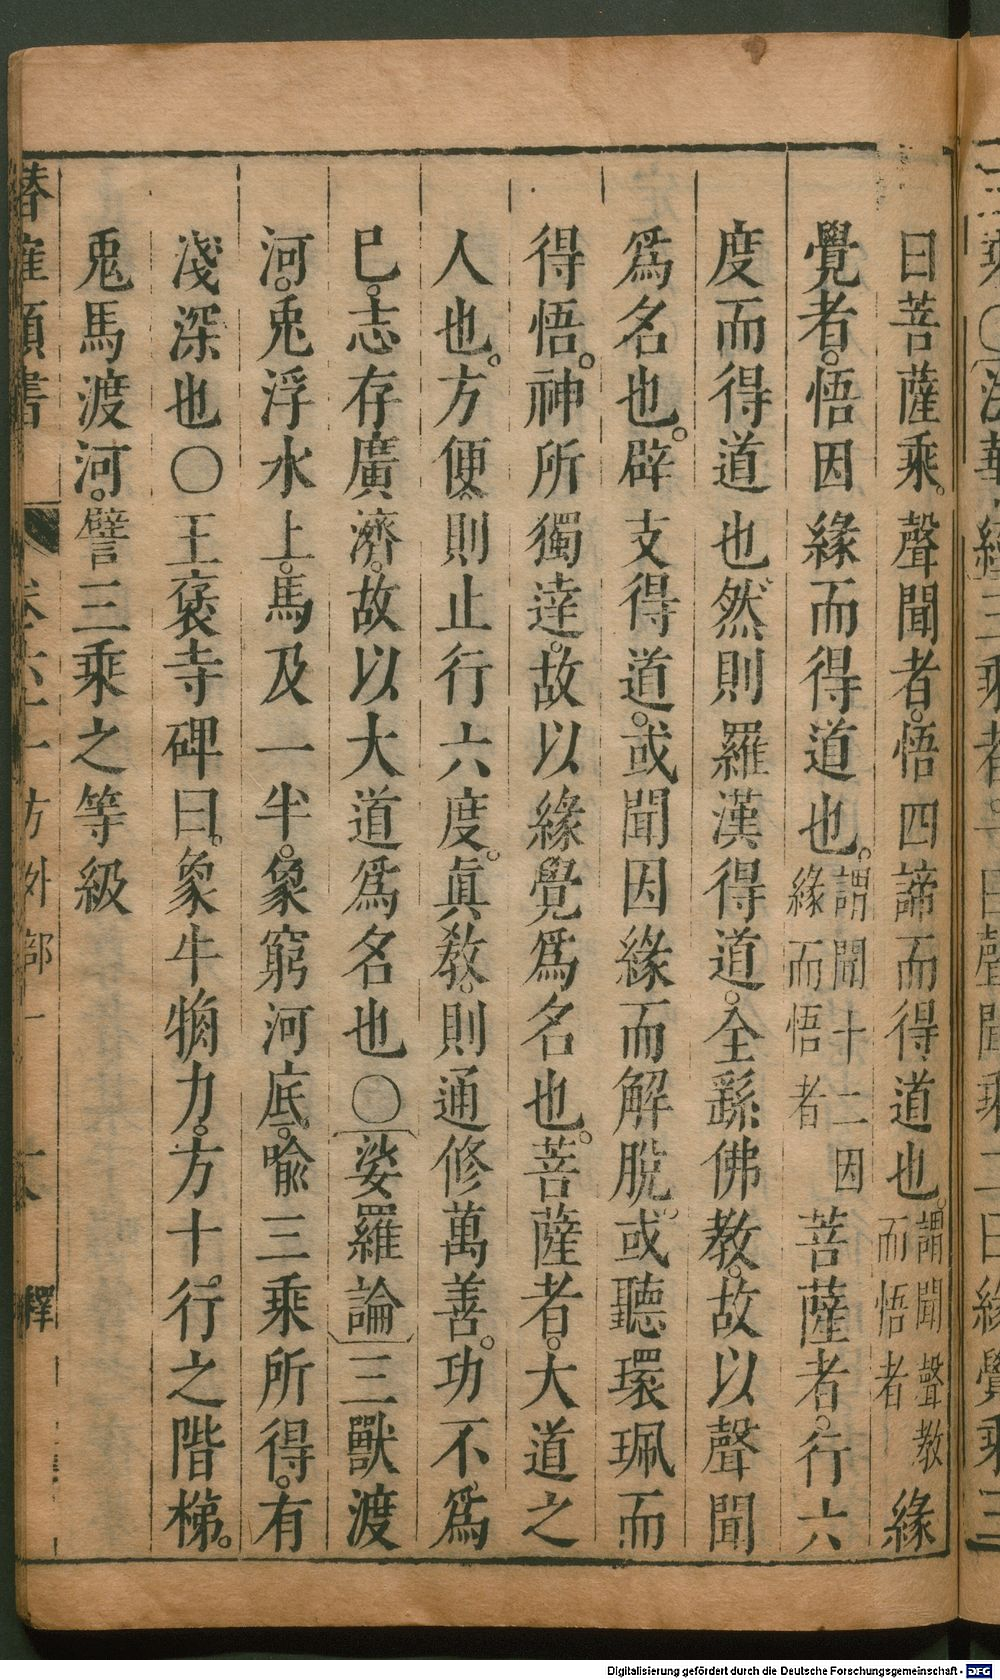 曰菩薩乘。聲聞者。悟四諦而得道也。謂聞聲教而悟者緣
覺者。悟因緣而得道也。謂聞十二因緣而悟者菩薩者。行六
度而得道也。然則羅漢得道。全繇佛教。故以聲聞
爲名也。辟支得道。或聞因緣而解脫。或聽環珮而
得悟。神所獨達。故以緣覺爲名也。菩薩者。大道之
人也。方便。則止行六度。眞教。則通修萬善。功不爲
巳。志存廣濟。故以大道爲名也〇〔娑羅論〕三獸渡
河。兎浮水上。馬及一半。象窮河底。喩三乘所得。有
淺深也〇王褒寺碑曰。象牛犓力。方十行之階梯。
兎馬渡河。譬三乘之等級
類書
方外部一
釋
Digitalisierung gefördert durch die Deutsche Forschungsgemeinschaft - DFG